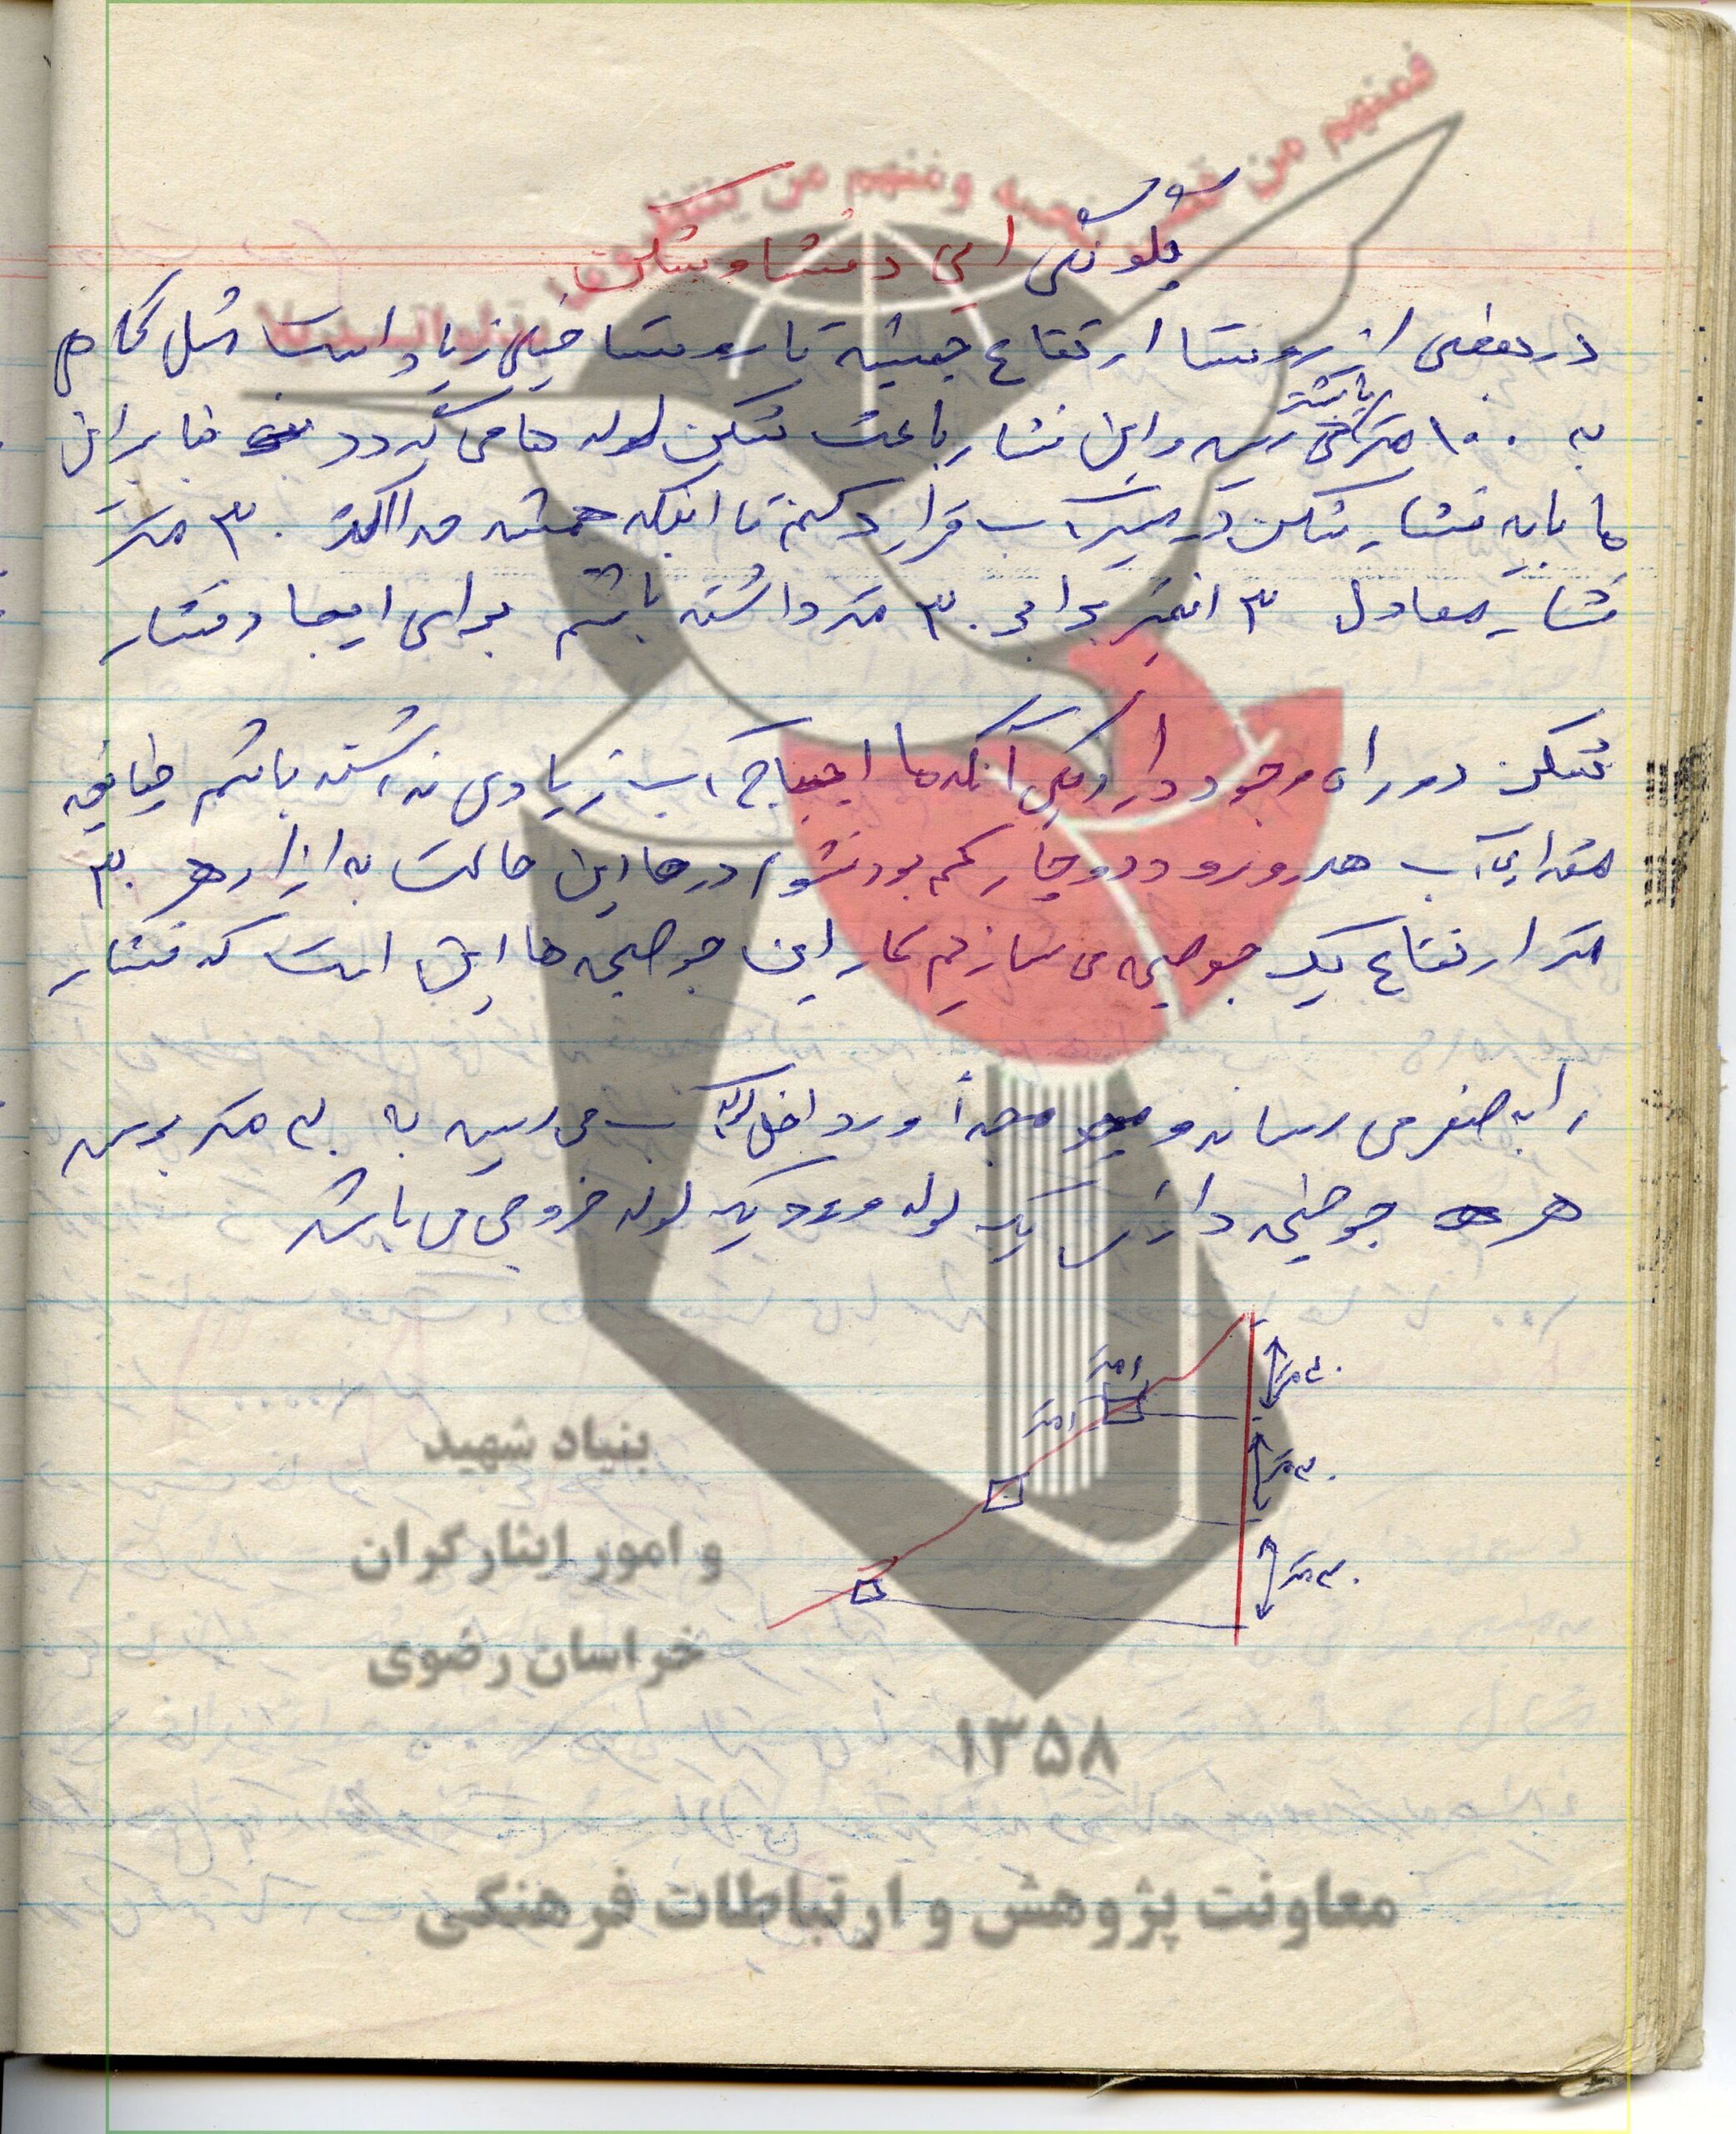 فمنهم من قضی نحبه ومنهم من ینتظر وما بدلوا تبدیلا
چگونگی ایجاد فشار شکن
در بعضی از روستا ارتفاع چشمه تا روستا خیلی زیاد است مثل گاهی
به ۱۰۰ متر یا بیشتر می رسد و این فشار باعث شکن لوله ها می گردد بنابراین
ما باید فشار شکن در مسیر آب قرار دهیم تا اینکه همیشه حداکثر ۳۰ متر
فشار معادل ۳ اتمسفر برابر ۳۰ متر داشته باشیم برای ایجاد فشار
شکن دو راه وجود دارد یکی آنکه ما احتیاج آب زیادی نداشته باشیم چنانچه
مقداری آب هدر رود دچار کمبود نشویم در این حالت به ازاء هر ۳۰
متر ارتفاع یک حوضچه می سازیم کار این حوضچه ها این است که فشار
را به صفر می رساند و مجدداً وارد داخل لوله آب می رسید به ۳۰ متر برسد
هر حوضچه دارای یک لوله ورود یک لوله خروجی می باشد
۳۰ متر
۱ متر
۱ متر
۳۰ متر
۳۰ متر
بنیاد شهید
و امور ایثارگران
خراسان رضوی
۱۳۵۸
معاونت پژوهش و ارتباطات فرهنگی